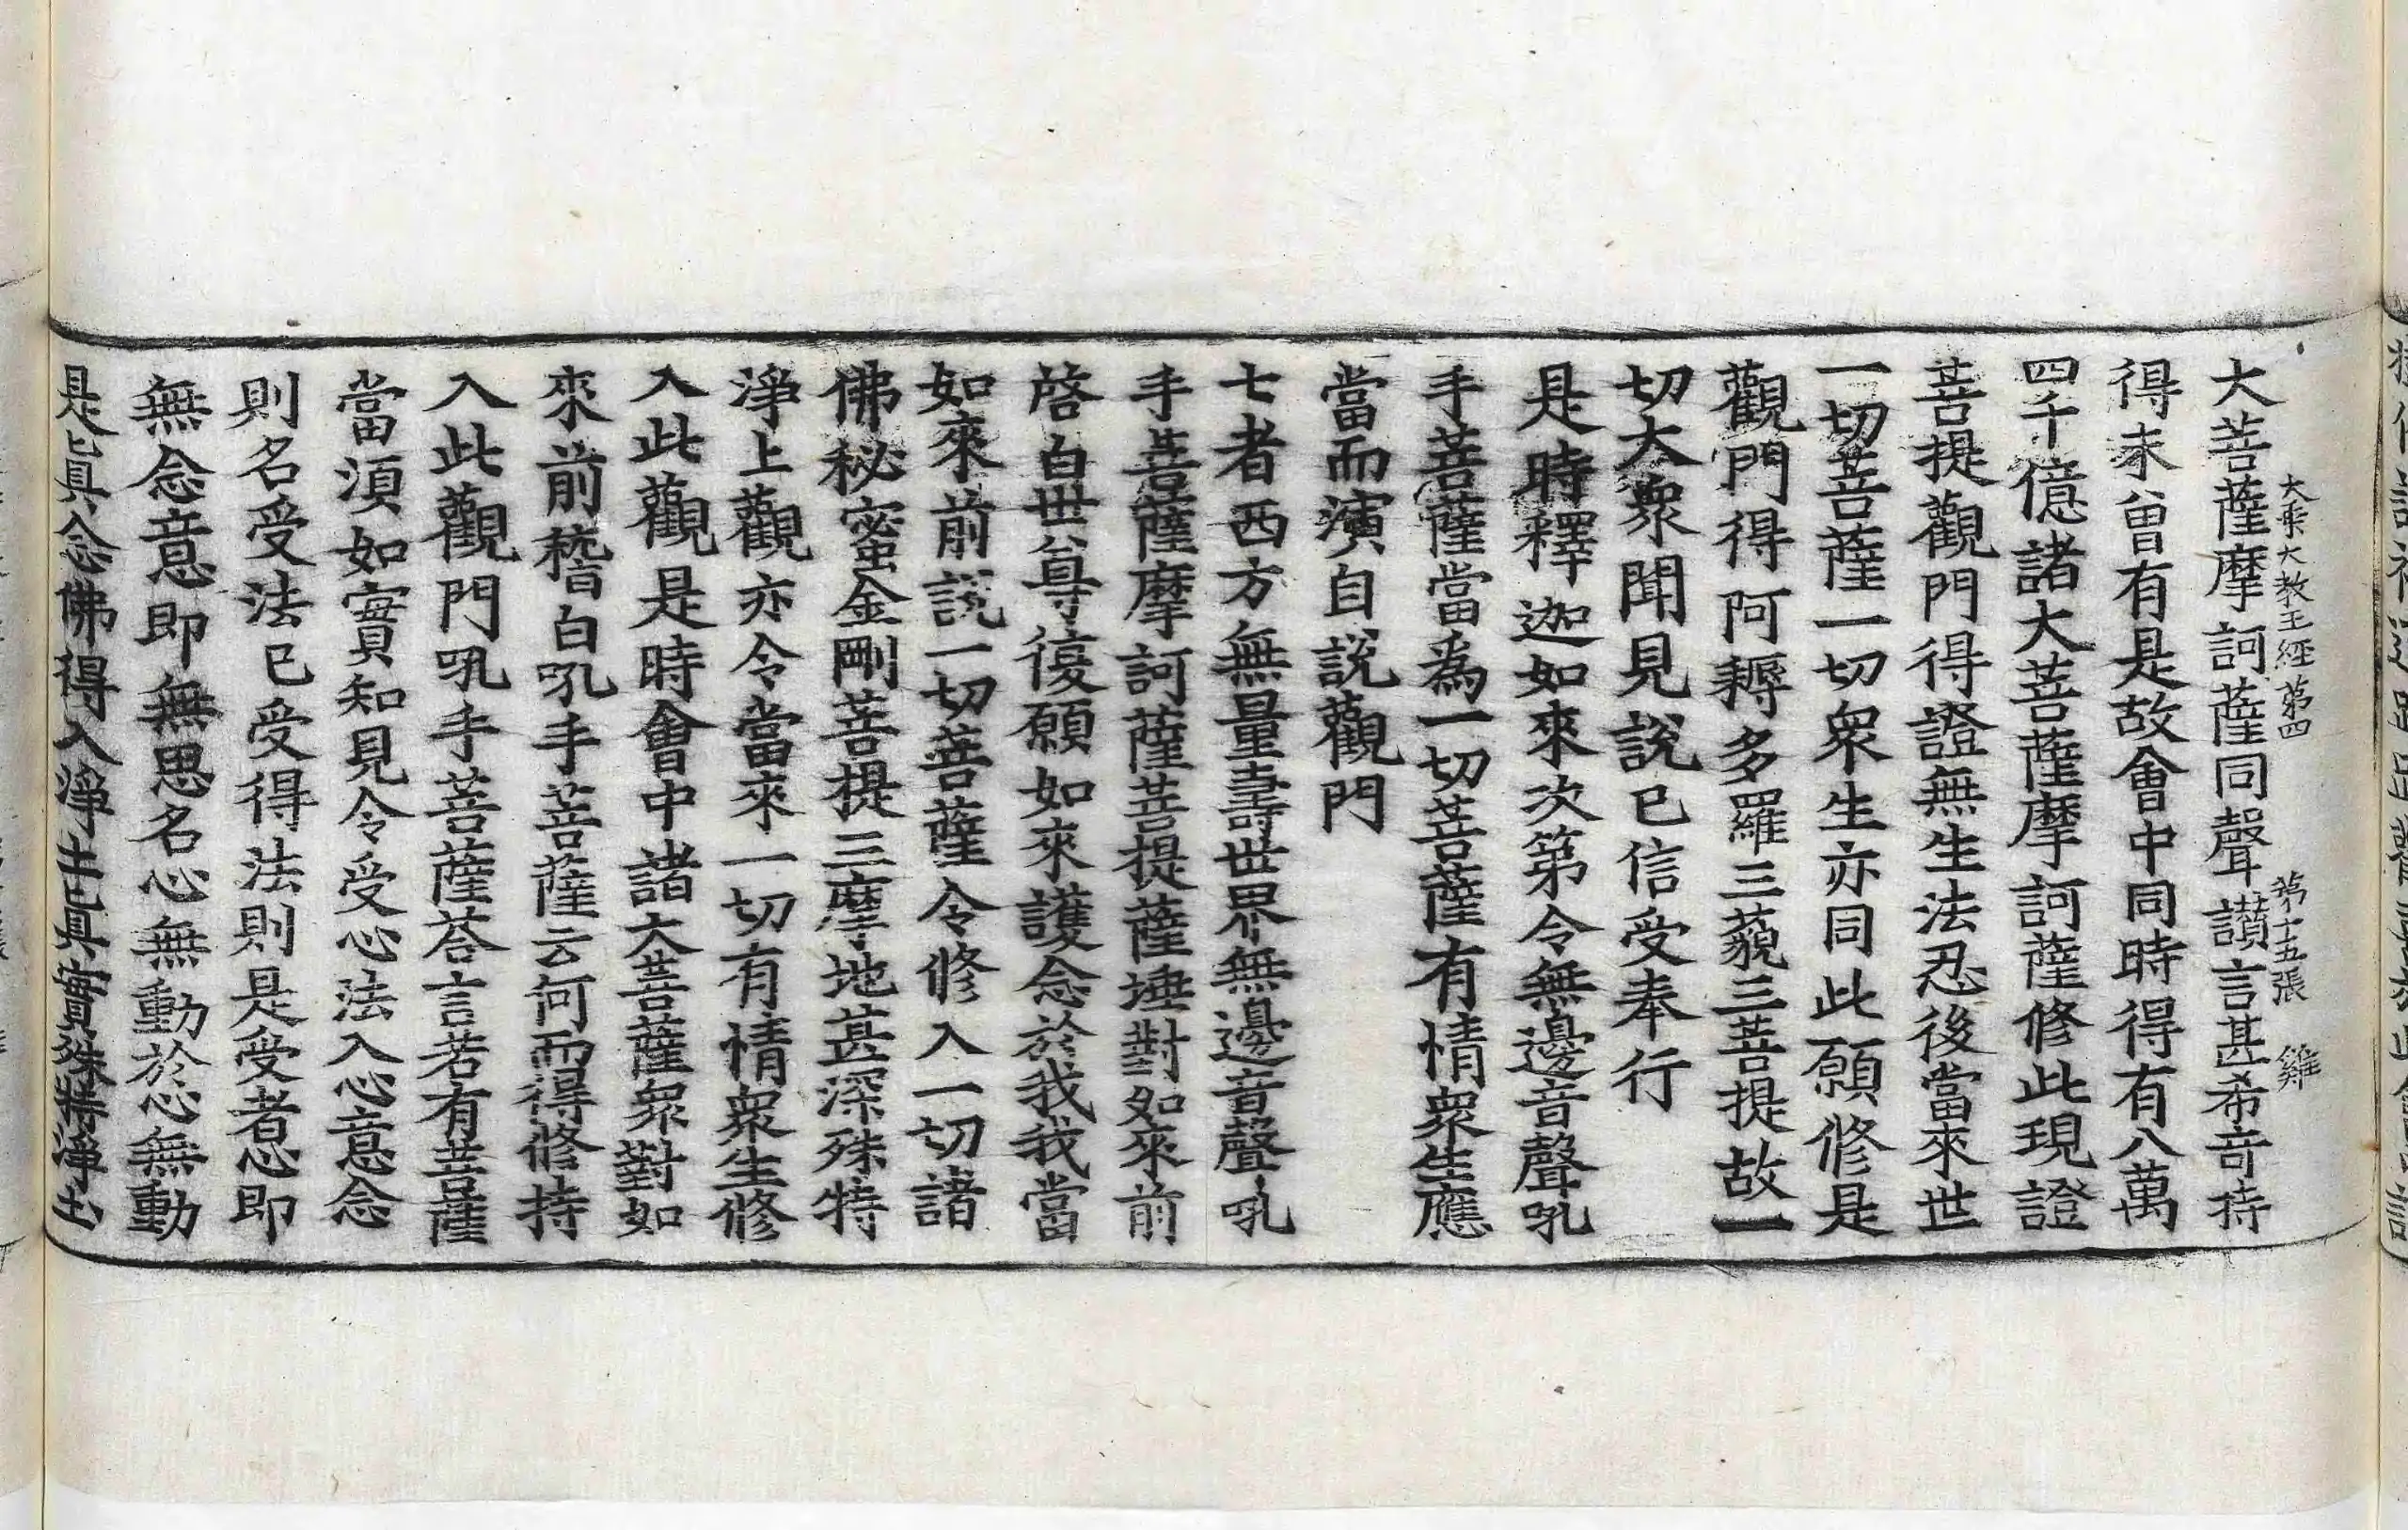 大乘大教王經第四 第十五張 雞
大菩薩摩訶薩同聲讃言甚希奇特
得未曾有是故會中同時得有八萬
四千億諸大菩薩摩訶薩修此現證
菩提觀門得證無生法忍後當來世
一切菩薩一切衆生亦同此願修是
觀門得阿耨多羅三藐三菩提故一
切大衆聞見說已信受奉行
是時釋迦如來次第令無邊音聲吼
手菩薩當爲一切菩薩有情衆生應
當而演自說觀門
七者西方無量壽世界無邊音聲吼
手菩薩摩訶薩菩提薩埵對如來前
啓白世尊復願如來護念於我我當
如來前說一切菩薩令修入一切諸
佛秘蜜金剛菩提三摩地甚深殊特
淨上觀亦令當來一切有情衆生修
入此觀是時會中諸大菩薩衆對如
來前稽白吼手菩薩云何而得修持
入此觀門吼手菩薩荅言若有菩薩
當須如實知見令受心法入心意念
則名受法已受得法則是受者忩即
無念意即無思名心無動於心無動
是眞念佛得入淨土眞實殊特淨土